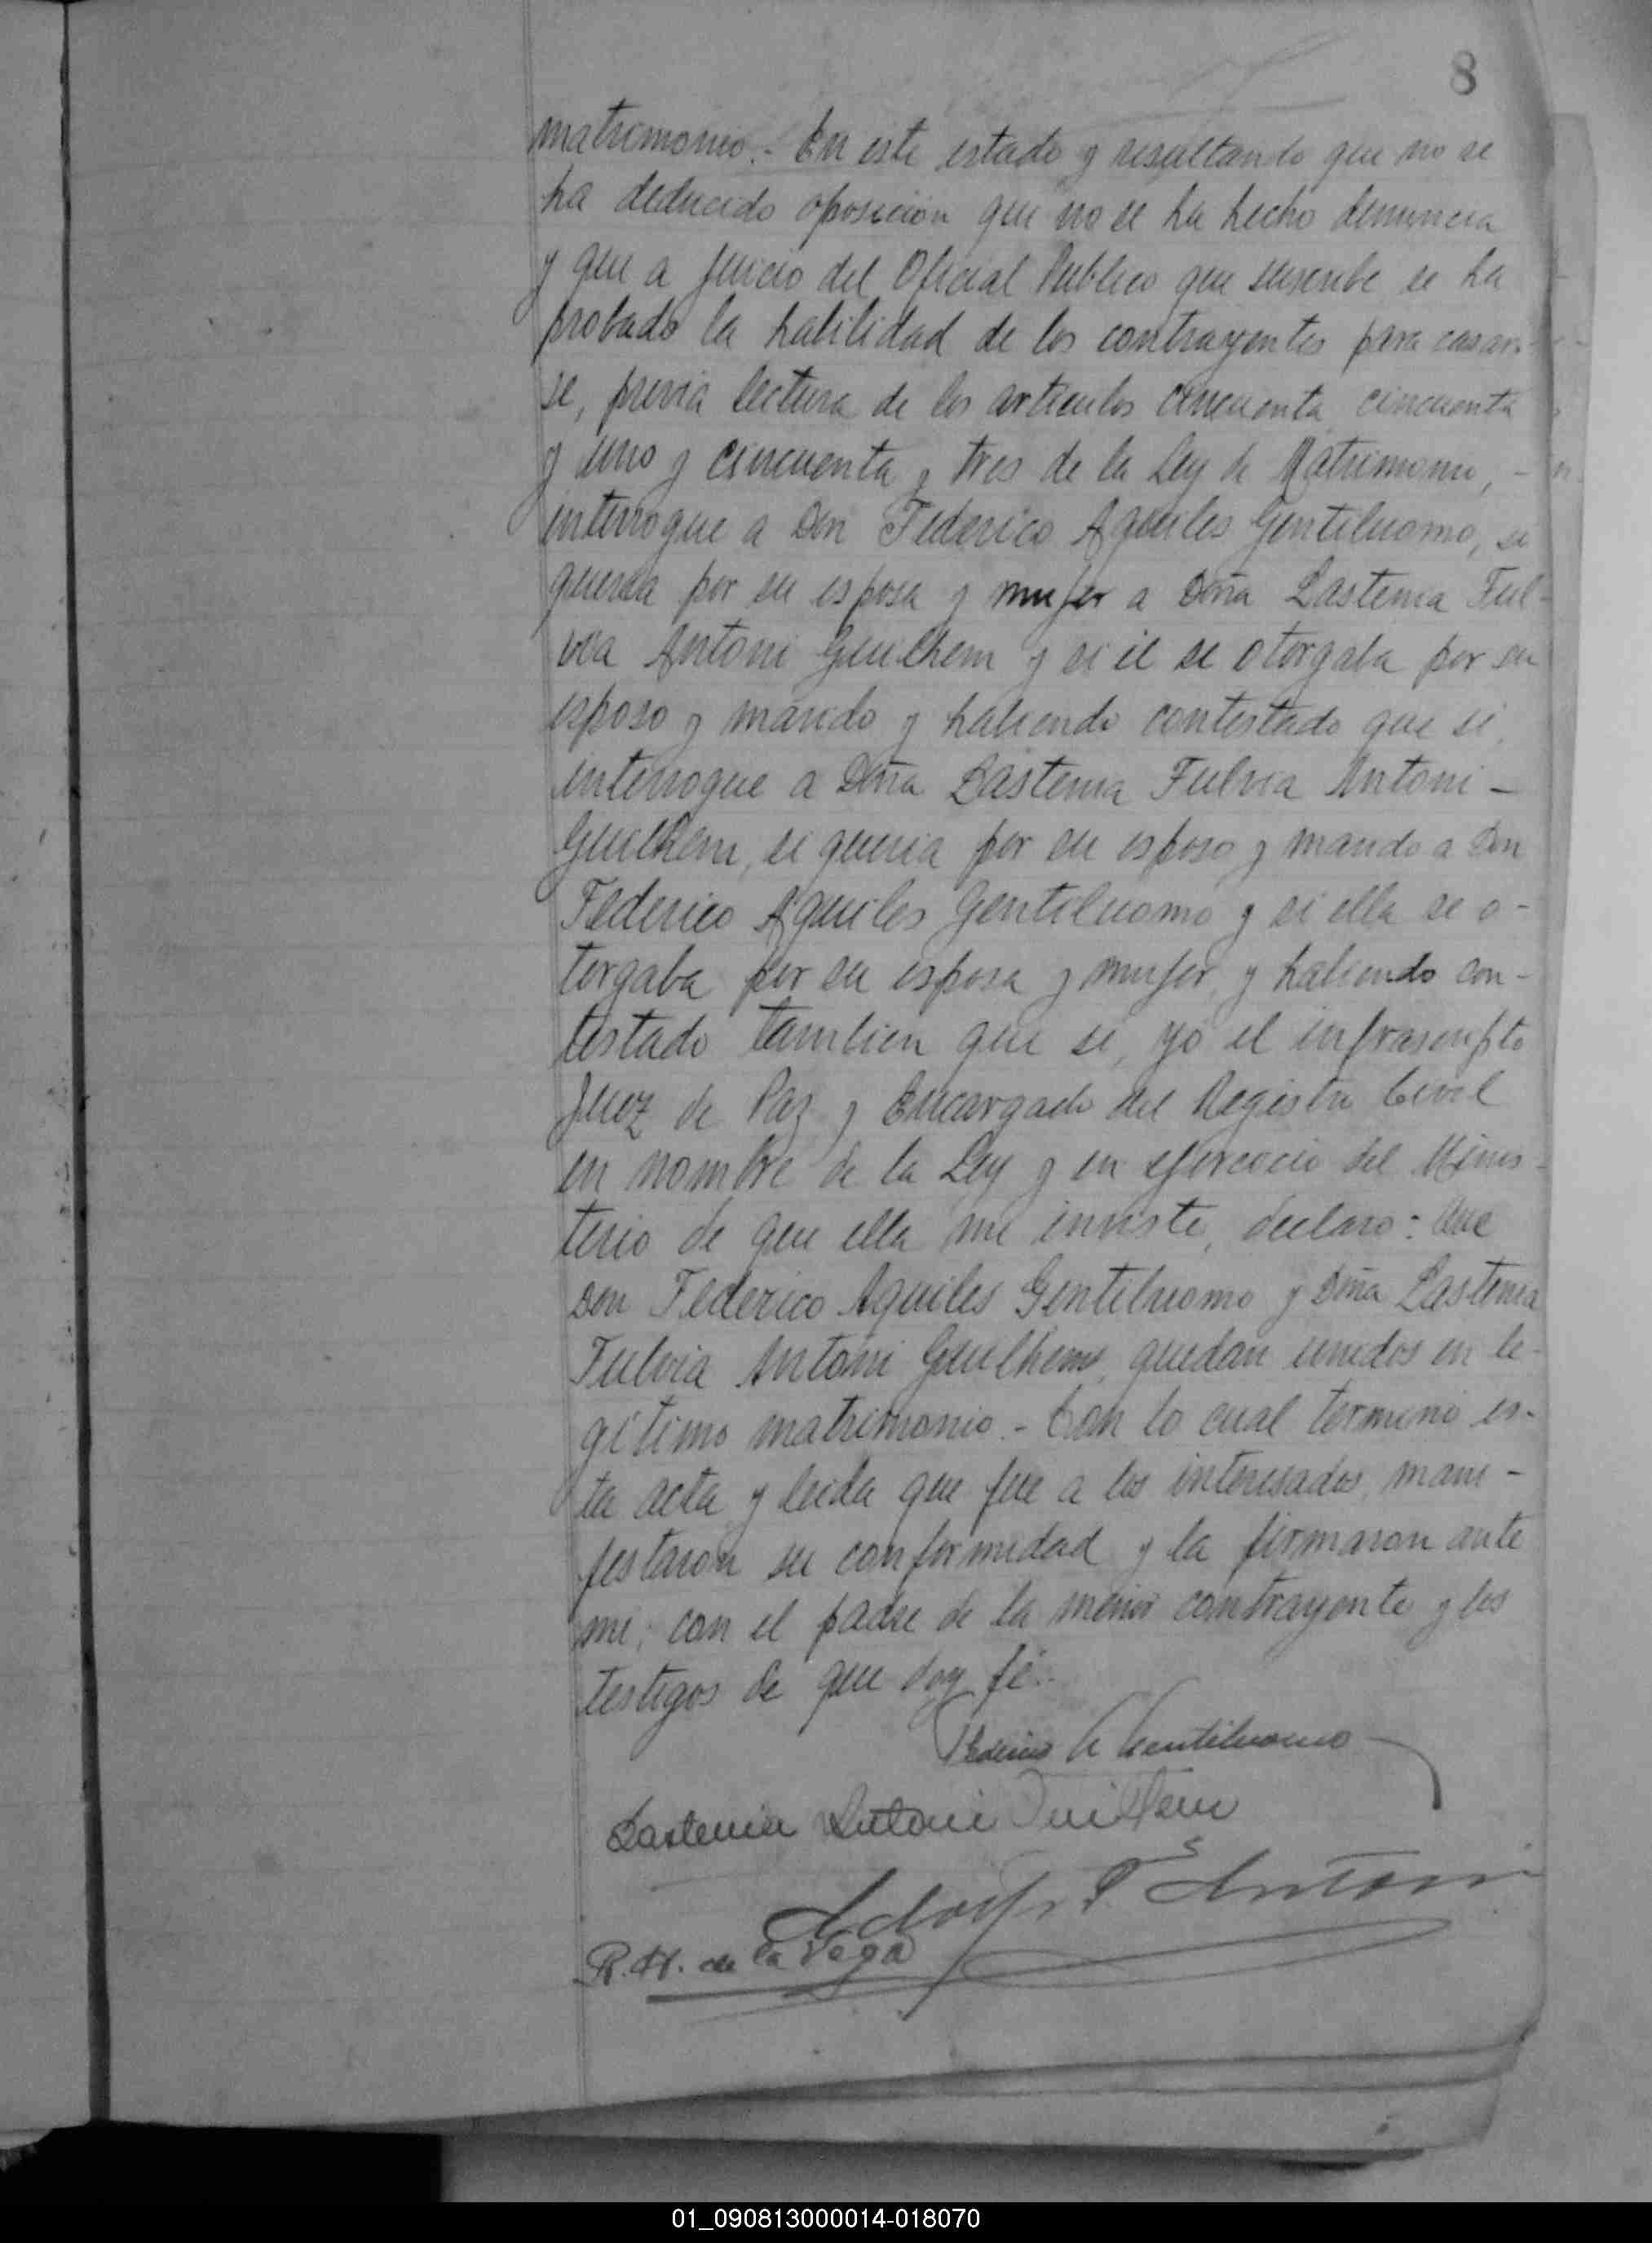 8
matrimonio.- En este estado y resultando que no se
ha deducido oposicion que no se ha hecho denuncia
y que a juicio del Oficial Publico que suscribe se ha
probado la habilidad de los contrayentes para casar-
se, previa lectura de los articulos cincuenta, cincuenta
y uno y cincuenta y tres de la Ley de Matrimonio, -
interrogue a Don Federico Aquiles Gentiluomo, si
queria por su esposa y mujer a Doña Lastenia Ful-
via Antoni Guilhem y si él se otorgaba por su
esposo y marido y habiendo contestado que si,
interrogue a Doña Lastenia Fulvia Antoni -
Guilhem, si queria por su esposo y marido a Don
Federico Aquiles Gentiluomo y si ella se o-
torgaba por su esposa y mujer, y habiendo con-
testado tambien que si, yo el infrascripto
Juez de Paz y Encargado del Registro Civil
en nombre de la Ley y en ejercicio del Minis-
terio de que ella me inviste, declaro: Que
Don Federico Aquiles Gentiluomo y Doña Lastenia
Fulvia Antoni Guilhem, quedan unidos en le-
gitimo matrimonio.- Con lo cual termino es-
ta acta y leida que fue a los interesados, mani-
festaron su conformidad y la firmaron ante
mi; con el padre de la menor contrayente y los
testigos de que doy fé.-
Federico A Gentiluomo
Lastenia Antoni Guilhem
Adolfo P Antoni
R. H. de la Vega
01_090813000014-018070